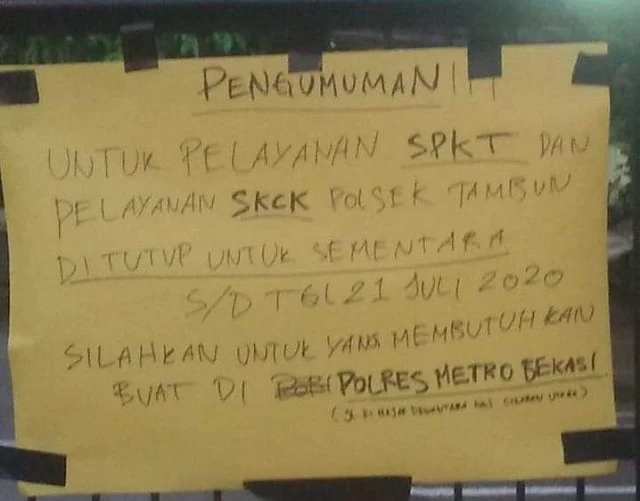 PENGUMUMAN!!!
UNTUK PELAYANAN SPKT DAN
PELAYANAN SKCK POLSEK TAMBUN
DITUTUP UNTUK SEMENTARA
S/D TGL 21 JULI 2020
SILAHKAN UNTUK YANG MEMBUTUHKAN
BUAT DI POLRES METRO BEKASI
(JL. KI HAJAR DEWANTARA